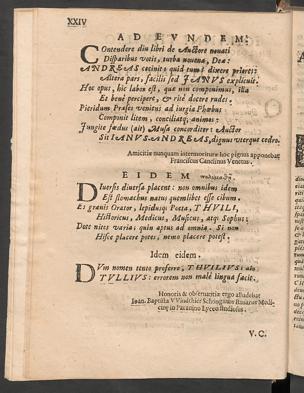 XXIV
AD EUNDEM.
Contendere diu libri de Auctore novati
Disparibus votis, turba novena, Deæ:
ANDREAS cecinit quid tum dixere priores:
Altera pars, facilis sed JANUS explicuit.
Hoc opus, hic labor est, quæ nin componimus, illa
Et benè percipere, & ritè docere rudes.
Pieridum Præses veniens ad jurgia Phœbus
Componit litem, conciliatq; animos:
Jungite fœdus (ait) Musæ concorditer: Auctor
Sit JANUS-ANDREAS, dignus uterque cedro.
Amicitiæ nunquam intermoriturae hoc pignus apponebat
Franciscus Cancianus Venetus.
EIDEM
Diversis diversa placent: non omnibus idem
Est stomachus natus quemlibet esse cibum.
Et gravis Orator, lepidusq; Poeta, THVLLI,
Historicus, Medicus, Musicus, atq; Sophus:
Dote nites variâ; quin aptus ad omnia. Si non
Hisce placere potes, nemo placere potest.
Idem eidem.
Dum nomen tento proferre, THUILIUS: aio
TVLLIUS: errorem non malè lingua facit.
Honoris & observantiæ ergo alludebat
Joan. Baptista
in Patavino Lyceo studiosus.
V. C.